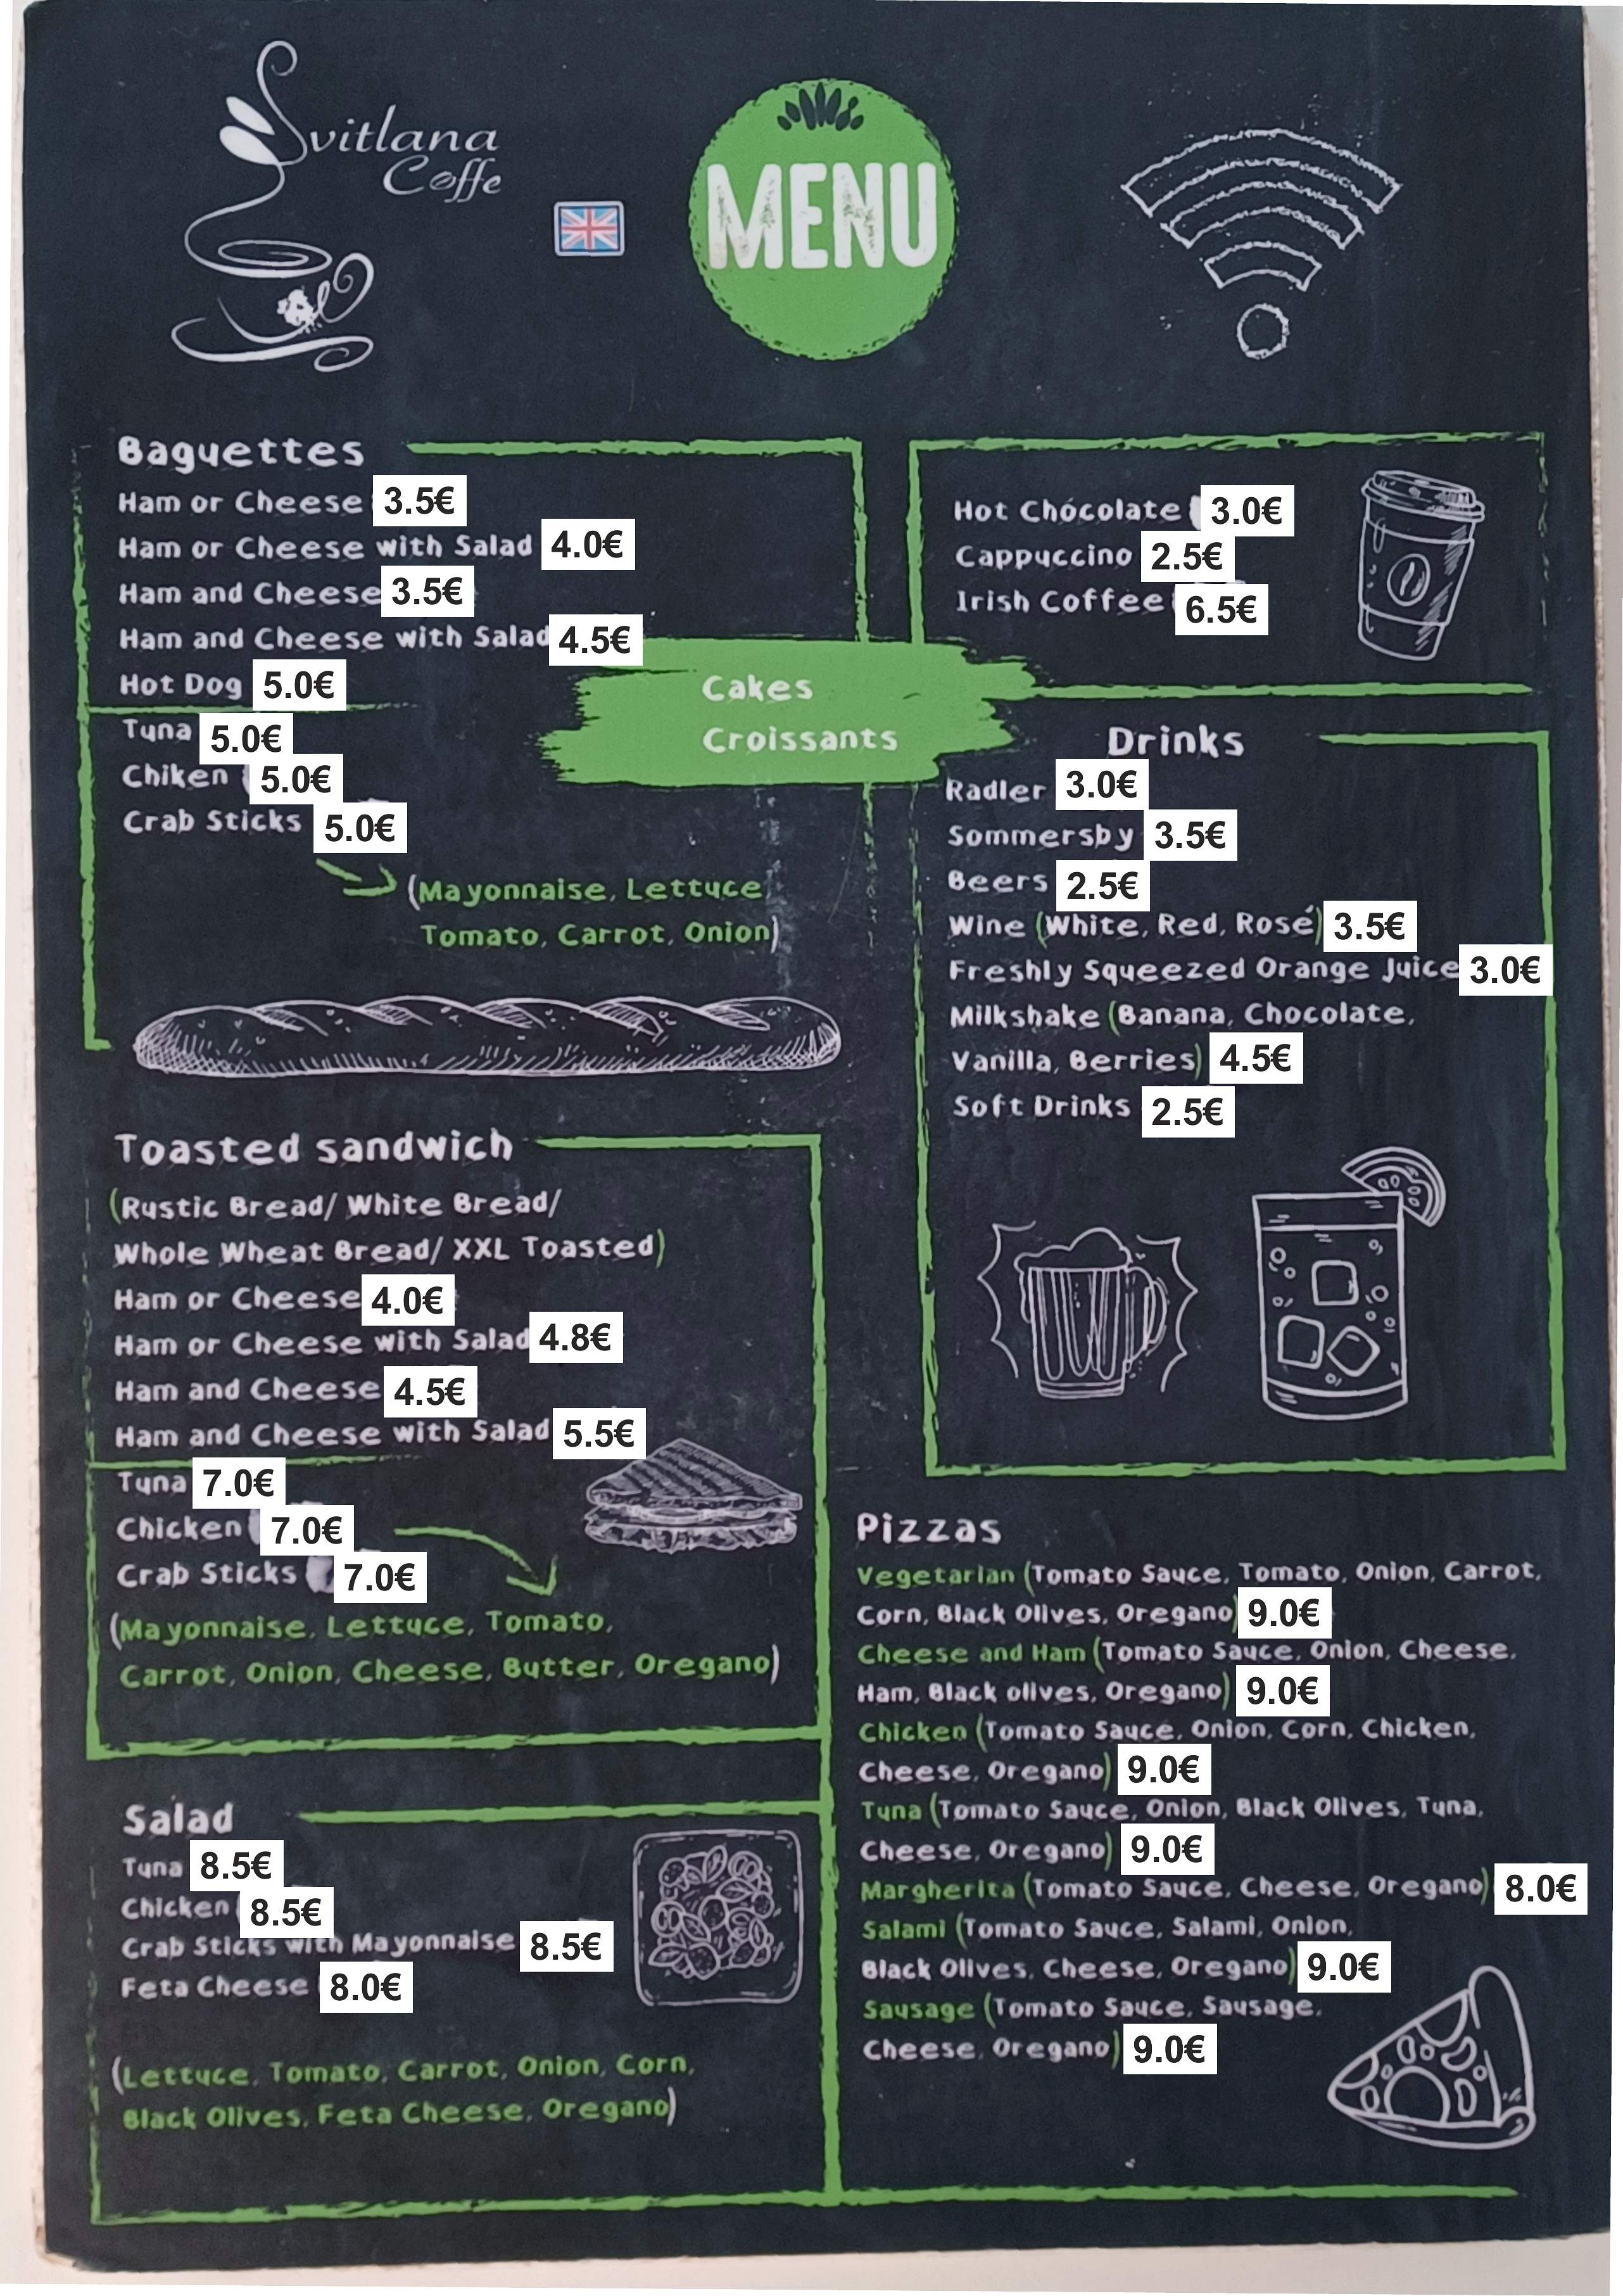 Svitlana
Coffe
MENU
Baguettes
Ham or Cheese 3.5€
Ham or Cheese with Salad 4.0€
Ham and Cheese 3.5€
Ham and Cheese with Salad 4.5€
Hot Dog 5.0€
Tuna 5.0€
Chiken 5.0€
Crab Sticks 5.0€
(Mayonnaise, Lettuce
Tomato, Carrot, Onion)
Cakes
Croissants
Hot Chocolate 3.0€
Cappuccino 2.5€
Irish Coffee 6.5€
Drinks
Radler 3.0€
Sommersby 3.5€
Beers 2.5€
Wine (White, Red, Rosé) 3.5€
Freshly Squeezed Orange Juice 3.0€
Milkshake (Banana, Chocolate,
Vanilla, Berries) 4.5€
Soft Drinks 2.5€
Toasted sandwich
(Rustic Bread/ White Bread/
Whole Wheat Bread/ XXL Toasted)
Ham or Cheese 4.0€
Ham or Cheese with Salad 4.8€
Ham and Cheese 4.5€
Ham and Cheese with Salad 5.5€
Tuna 7.0€
Chicken 7.0€
Crab Sticks 7.0€
(Mayonnaise, Lettuce, Tomato,
Carrot, Onion, Cheese, Butter, Oregano)
Salad
Tuna 8.5€
Chicken 8.5€
Crab Sticks with Mayonnaise 8.5€
Feta Cheese 8.0€
(Lettuce, Tomato, Carrot, Onion, Corn,
Black Olives, Feta Cheese, Oregano)
Pizzas
Vegetarian (Tomato Sauce, Tomato, Onion, Carrot,
Corn, Black Olives, Oregano) 9.0€
Cheese and Ham (Tomato Sauce, Onion, Cheese,
Ham, Black olives, Oregano) 9.0€
Chicken (Tomato Sauce, Onion, Corn, Chicken,
Cheese, Oregano) 9.0€
Tuna (Tomato Sauce, Onion, Black Olives, Tuna,
Cheese, Oregano) 9.0€
Margherita (Tomato Sauce, Cheese, Oregano) 8.0€
Salami (Tomato Sauce, Salami, Onion,
Black Olives, Cheese, Oregano) 9.0€
Sausage (Tomato Sauce, Sausage,
Cheese, Oregano) 9.0€